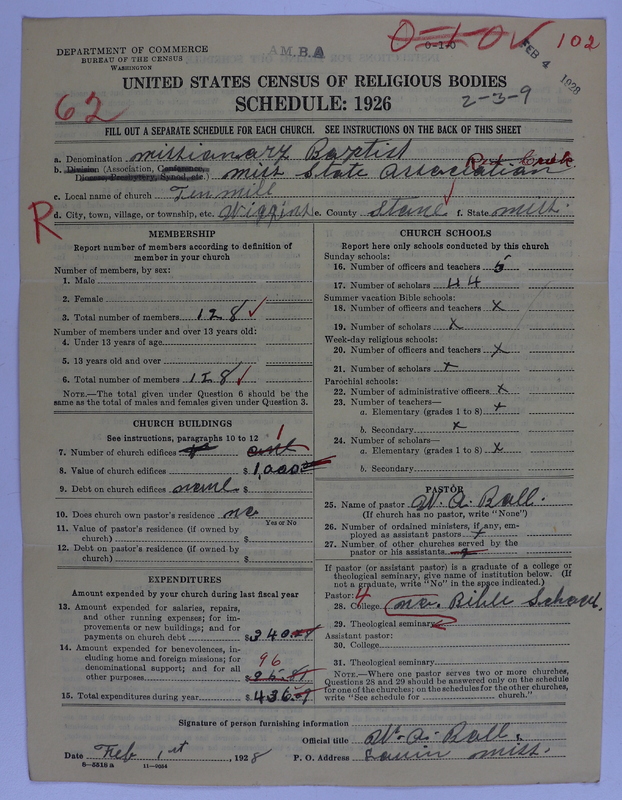 DEPARTMENT OF COMMERCE
BUREAU OF THE CENSUS
WASHINGTON
A.M.B.A
0-1-0
FEB 4 1928
102
UNITED STATES CENSUS OF RELIGIOUS BODIES
SCHEDULE: 1926
62
2-3-9
FILL OUT A SEPARATE SCHEDULE FOR EACH CHURCH. SEE INSTRUCTIONS ON THE BACK OF THIS SHEET
a. Denomination Missionary Baptist
b. Division (Association, Conference, Diocese, Presbytery, Synod, etc.) Miss State Association
c. Local name of church Ten mill
R
d. City, town, village, or township, etc. Wiggins e. County Stone f. State Miss.
MEMBERSHIP
Report number of members according to definition of
member in your church
Number of members, by sex:
1. Male
2. Female
3. Total number of members 128
Number of members under and over 13 years old:
4. Under 13 years of age
5. 13 years old and over
6. Total number of members 128
NOTE.—The total given under Question 6 should be
the same as the total of males and females given under Question 3.
CHURCH BUILDINGS
See instructions, paragraphs 10 to 12
7. Number of church edifices 1
8. Value of church edifices $ 1,000
9. Debt on church edifices none $
10. Does church own pastor's residence no
Yes or No
11. Value of pastor's residence (if owned by
church) $
12. Debt on pastor's residence (if owned by
church) $
EXPENDITURES
Amount expended by your church during last fiscal year
13. Amount expended for salaries, repairs,
and other running expenses; for im-
provements or new buildings; and for
payments on church debt $ 340
14. Amount expended for benevolences, in-
cluding home and foreign missions; for
denominational support; and for all
other purposes $ 96
15. Total expenditures during year $ 436
CHURCH SCHOOLS
Report here only schools conducted by this church
Sunday schools:
16. Number of officers and teachers 5
17. Number of scholars 44
Summer vacation Bible schools:
18. Number of officers and teachers x
19. Number of scholars x
Week-day religious schools:
20. Number of officers and teachers x
21. Number of scholars x
Parochial schools:
22. Number of administrative officers x
23. Number of teachers—
a. Elementary (grades 1 to 8) x
b. Secondary x
24. Number of scholars—
a. Elementary (grades 1 to 8) x
b. Secondary
PASTOR
25. Name of pastor W. A. Ball.
(If church has no pastor, write "None")
26. Number of ordained ministers, if any, em-
ployed as assistant pastors x
27. Number of other churches served by the
pastor or his assistants
If pastor (or assistant pastor) is a graduate of a college or
theological seminary, give name of institution below. (If
not a graduate, write "No" in the space indicated.)
Pastor: 4
28. College no. Bible School.
29. Theological seminary
Assistant pastor:
30. College
31. Theological seminary
NOTE.—Where one pastor serves two or more churches,
Questions 28 and 29 should be answered only on the schedule
for one of the churches; on the schedules for the other churches,
write "See schedule for church."
Signature of person furnishing information
Official title W. A. Ball.
Date Feb 1st, 1928 P. O. Address Miss.
8—5518 a 11—9054